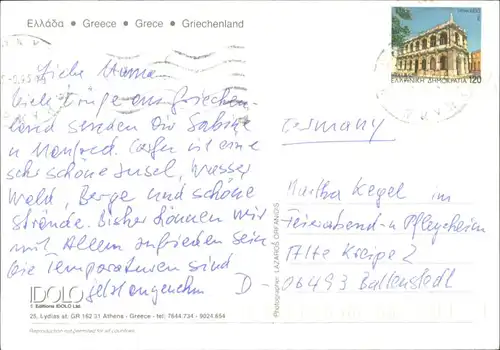 Ελλάδα • Greece • Grece • Griechenland
Liebe Mama
Viele Grüße aus Griechen-
land senden Dir Sabine
u Manfred. Corfu ist eine
sehr schöne Insel, Wasser
Wald, Berge und schöne
Strände. Bisher können wir
mit Allem zufrieden sein
Die Temperaturen sind
jetzt angenehm
ΕΛΛΗΝΙΚΗ ΔΗΜΟΚΡΑΤΙΑ 120
Germany
Martha Kegel im
Feierabend- u Pflegeheim
Alte Kreipe 2
D-06493 Ballenstedt
Photographer: LAZAROS ORFANOS
IDOLO
Editions IDOLO Ltd.
25, Lydias st. GR 162 31 Athens - Greece - tel: 7644.734 - 9024.654
Reproduction not permitted for all countries